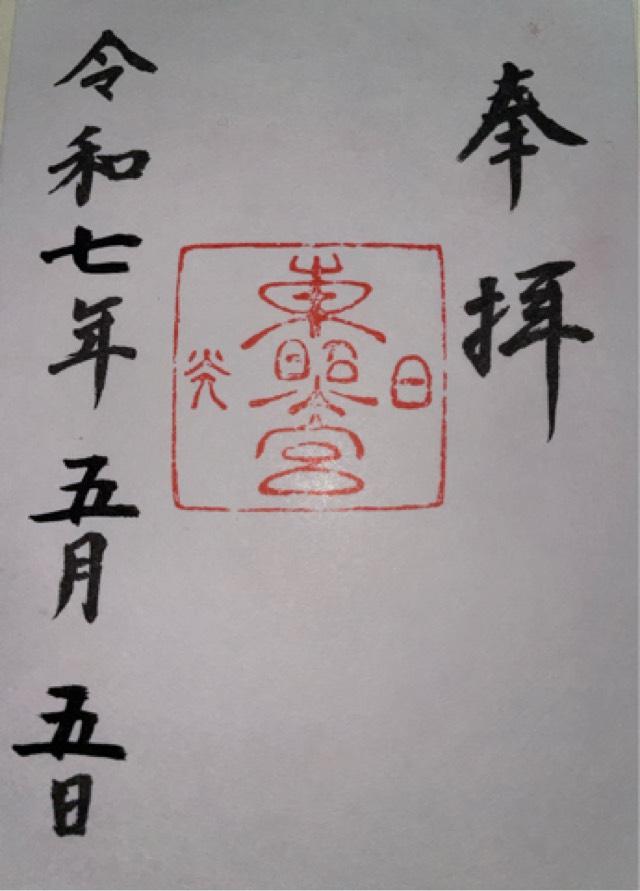 奉拝
日光
東照宮
令和七年 五月 五日